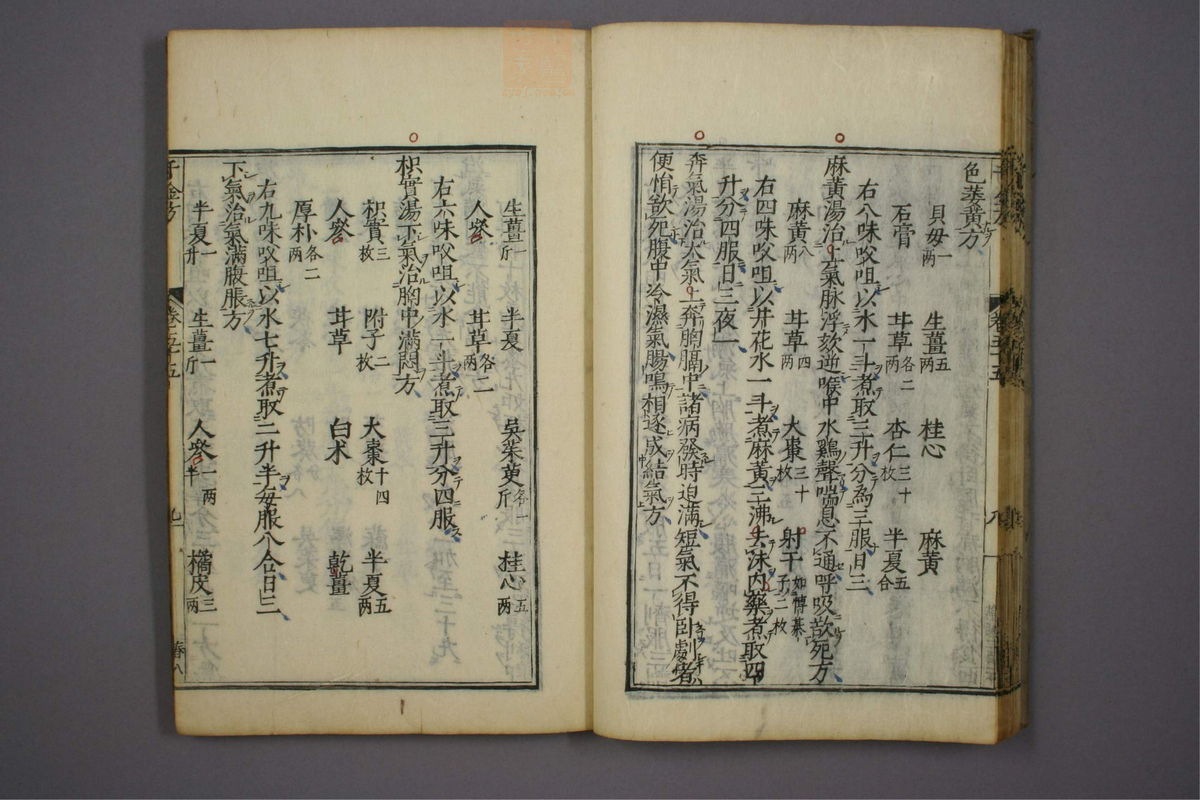 色萎黃方
貝毋一兩 生薑五兩 桂心 麻黃
石膏 甘草各二兩 杏仁三十枚 半夏五合
右八味㕮咀以水一斗煮取三升分為三服日三
麻黃湯治上氣脉浮欬逆喉中水雞聲喘息不通呼吸欲死方
麻黃八兩 甘草四兩 大棗三十枚 射干如博棊子二枚
右四味㕮咀以井花水一斗煮麻黃三沸去沫内藥煮取四
升分四服日三夜一
奔氣湯治大氣上奔胸膈中諸病發時迫滿短氣不得臥劇者
便悁欲死腹中冷濕氣腸鳴相逐成結氣方
生薑一斤 半夏 吳茱萸各一斤 桂心五兩
人參 甘草各二兩
右六味㕮咀以水一斗煮取三升分四服
枳實湯下氣治胸中滿悶方
枳實三枚 附子二枚 大棗十四枚 半夏五兩
人參 甘草 白术 乾薑
厚朴各二兩
右九味㕮咀以水七升煮取二升半每服八合日三
下氣治氣滿腹脹方
半夏一升 生薑一斤 人參一兩半 橘皮三兩
千金方 卷五十五